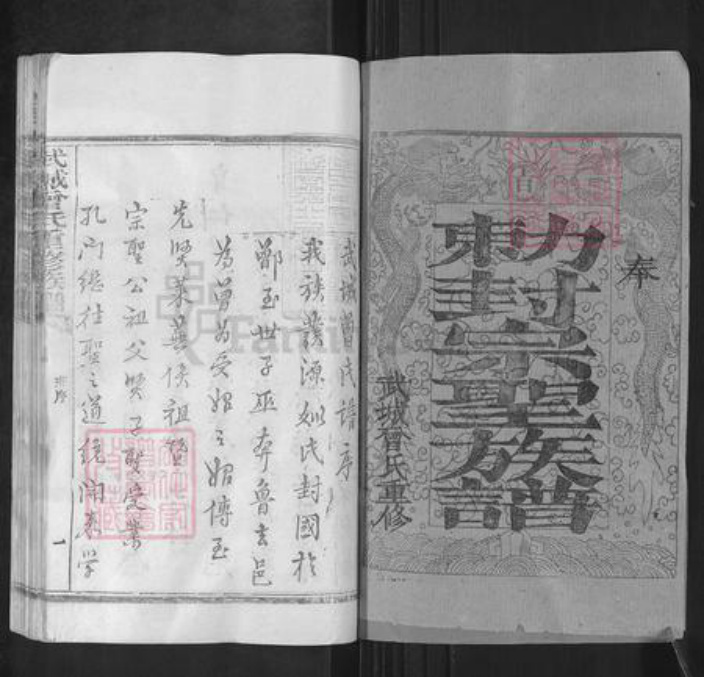 奉
勅封宗聖族譜
東
武城曾氏重修
武城曾氏譜序
我族發源姒氏封國於
鄫至世子巫奔魯去邑
為曾為受姒之姒傳至
先賢萊蕪侯祖暨
宗聖公祖父賢子聖受業
孔門繼往聖之道統開來學
武城曾氏重修族譜
序
一